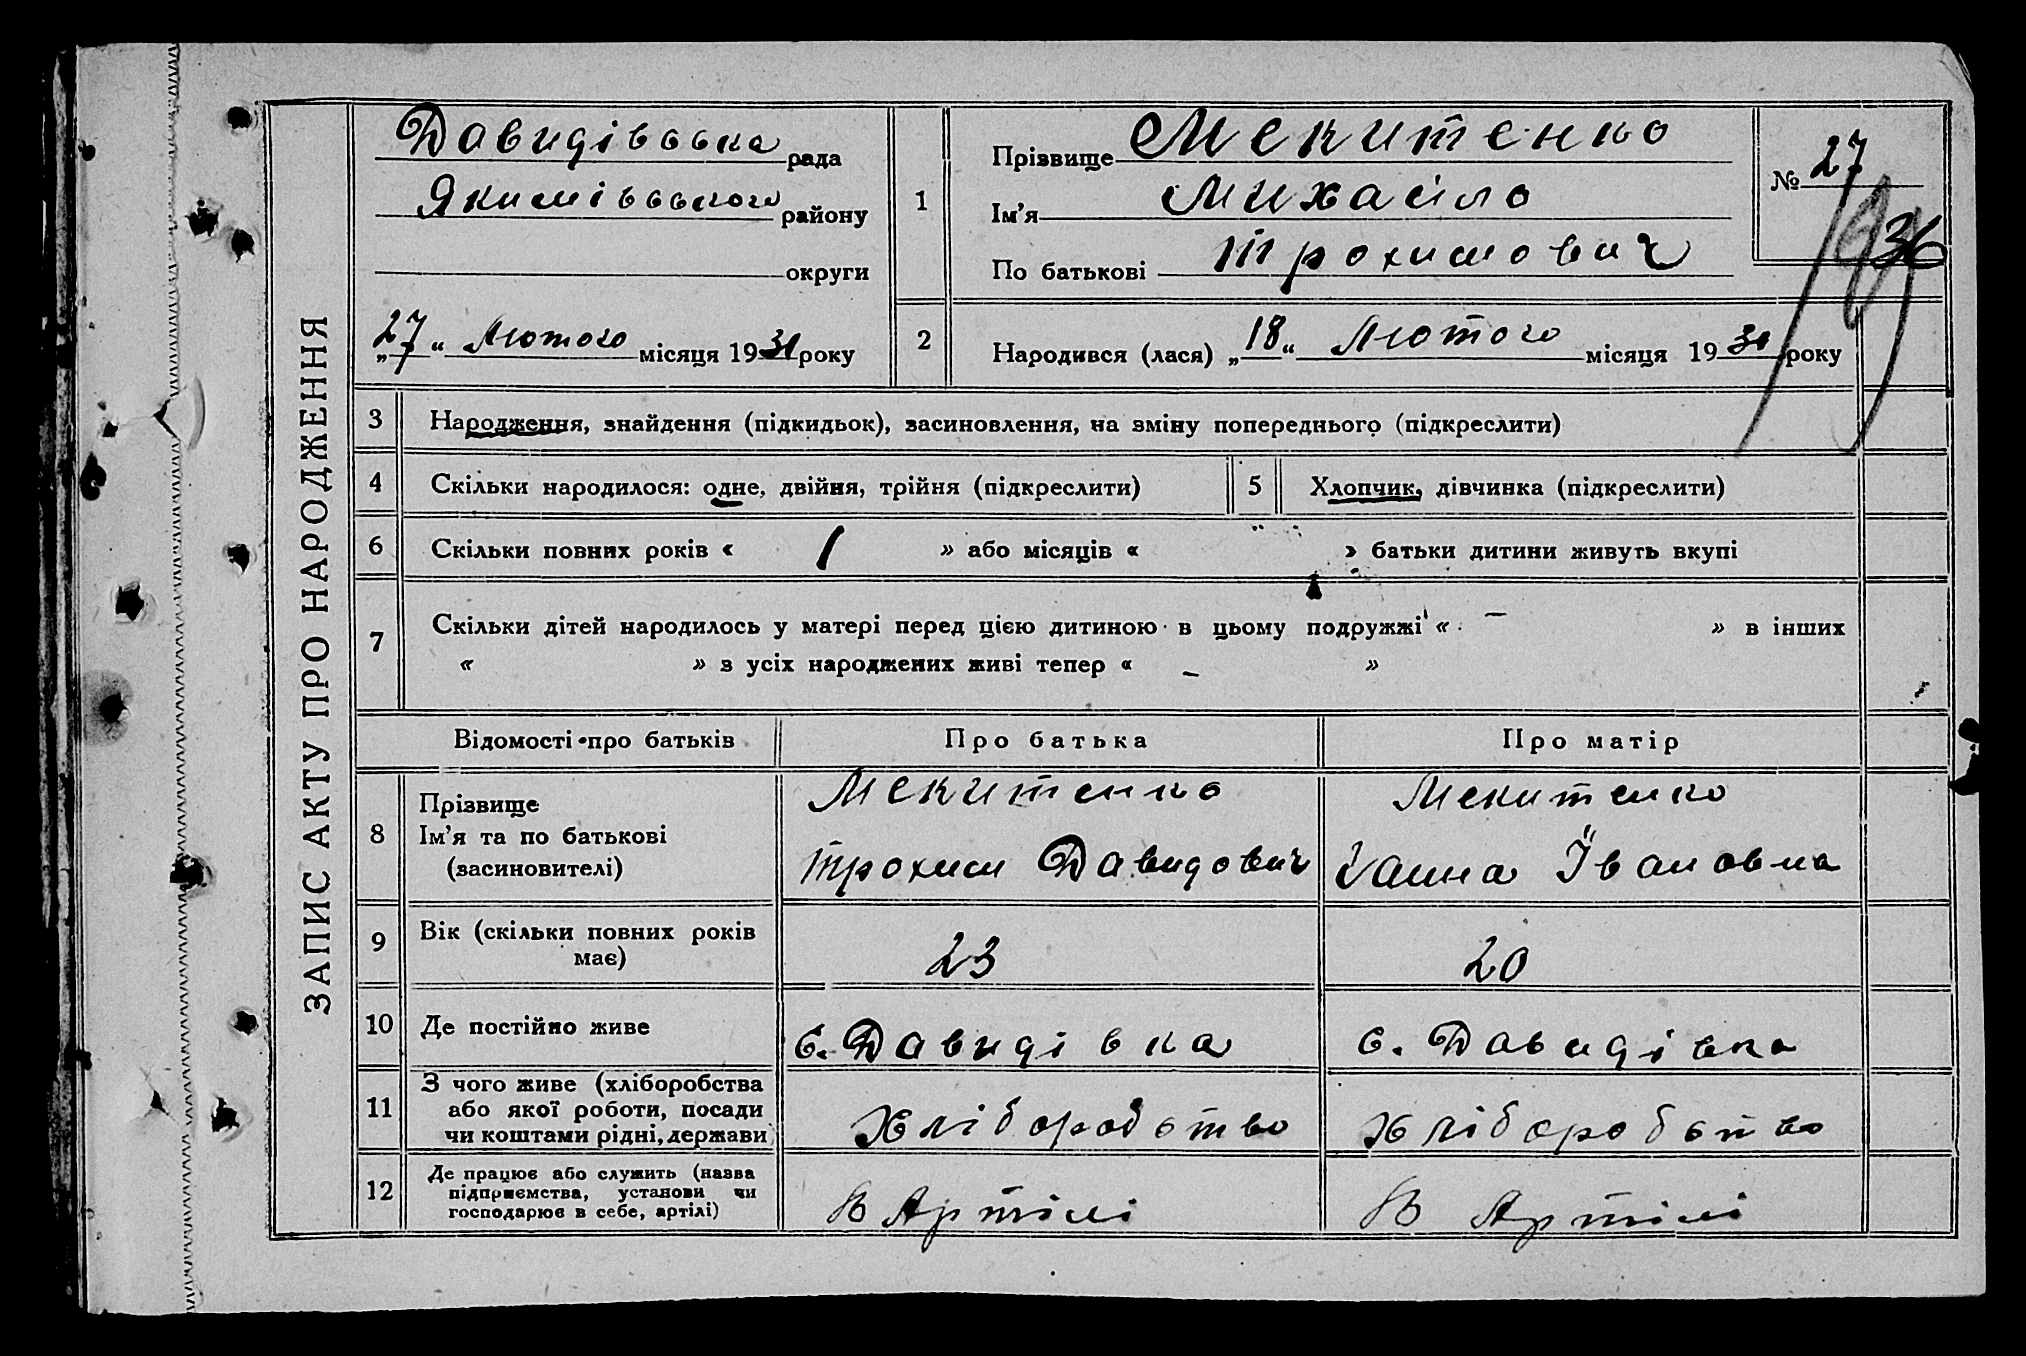 ЗАПИС АКТУ ПРО НАРОДЖЕННЯ
Давидівська рада
Якимівського району
округи
„27“ Лютого місяця 1931 року
1
Прізвище Мекитенко
Ім’я Михайло
По батькові Трохимович
№ 27
36
2
Народився (лася) „18“ Лютого місяця 1931 року
3 Народження, знайдення (підкидьок), засиновлення, на зміну попереднього (підкреслити)
4 Скільки народилося: одне, двійня, трійня (підкреслити) 5 Хлопчик, дівчинка (підкреслити)
6 Скільки повних років « 1 » або місяців « » батьки дитини живуть вкупі
7 Скільки дітей народилось у матері перед цією дитиною в цьому подружжі « — » в інших
« » з усіх народжених живі тепер « – »
Відомості про батьків Про батька Про матір
8 Прізвище
Ім’я та по батькові
(засиновителі)
Мекитенко
Трохим Давидович
Мекитенко
Ганна Івановна
9 Вік (скільки повних років
має)
23 20
10 Де постійно живе с. Давидівка с. Давидівка
11 З чого живе (хліборобства
або якої роботи, посади
чи коштами рідні, держави
Хліборобство Хліборобство
12 Де працює або служить (назва
підприємства, установи чи
господарює в себе, артілі)
В Артілі В Артілі